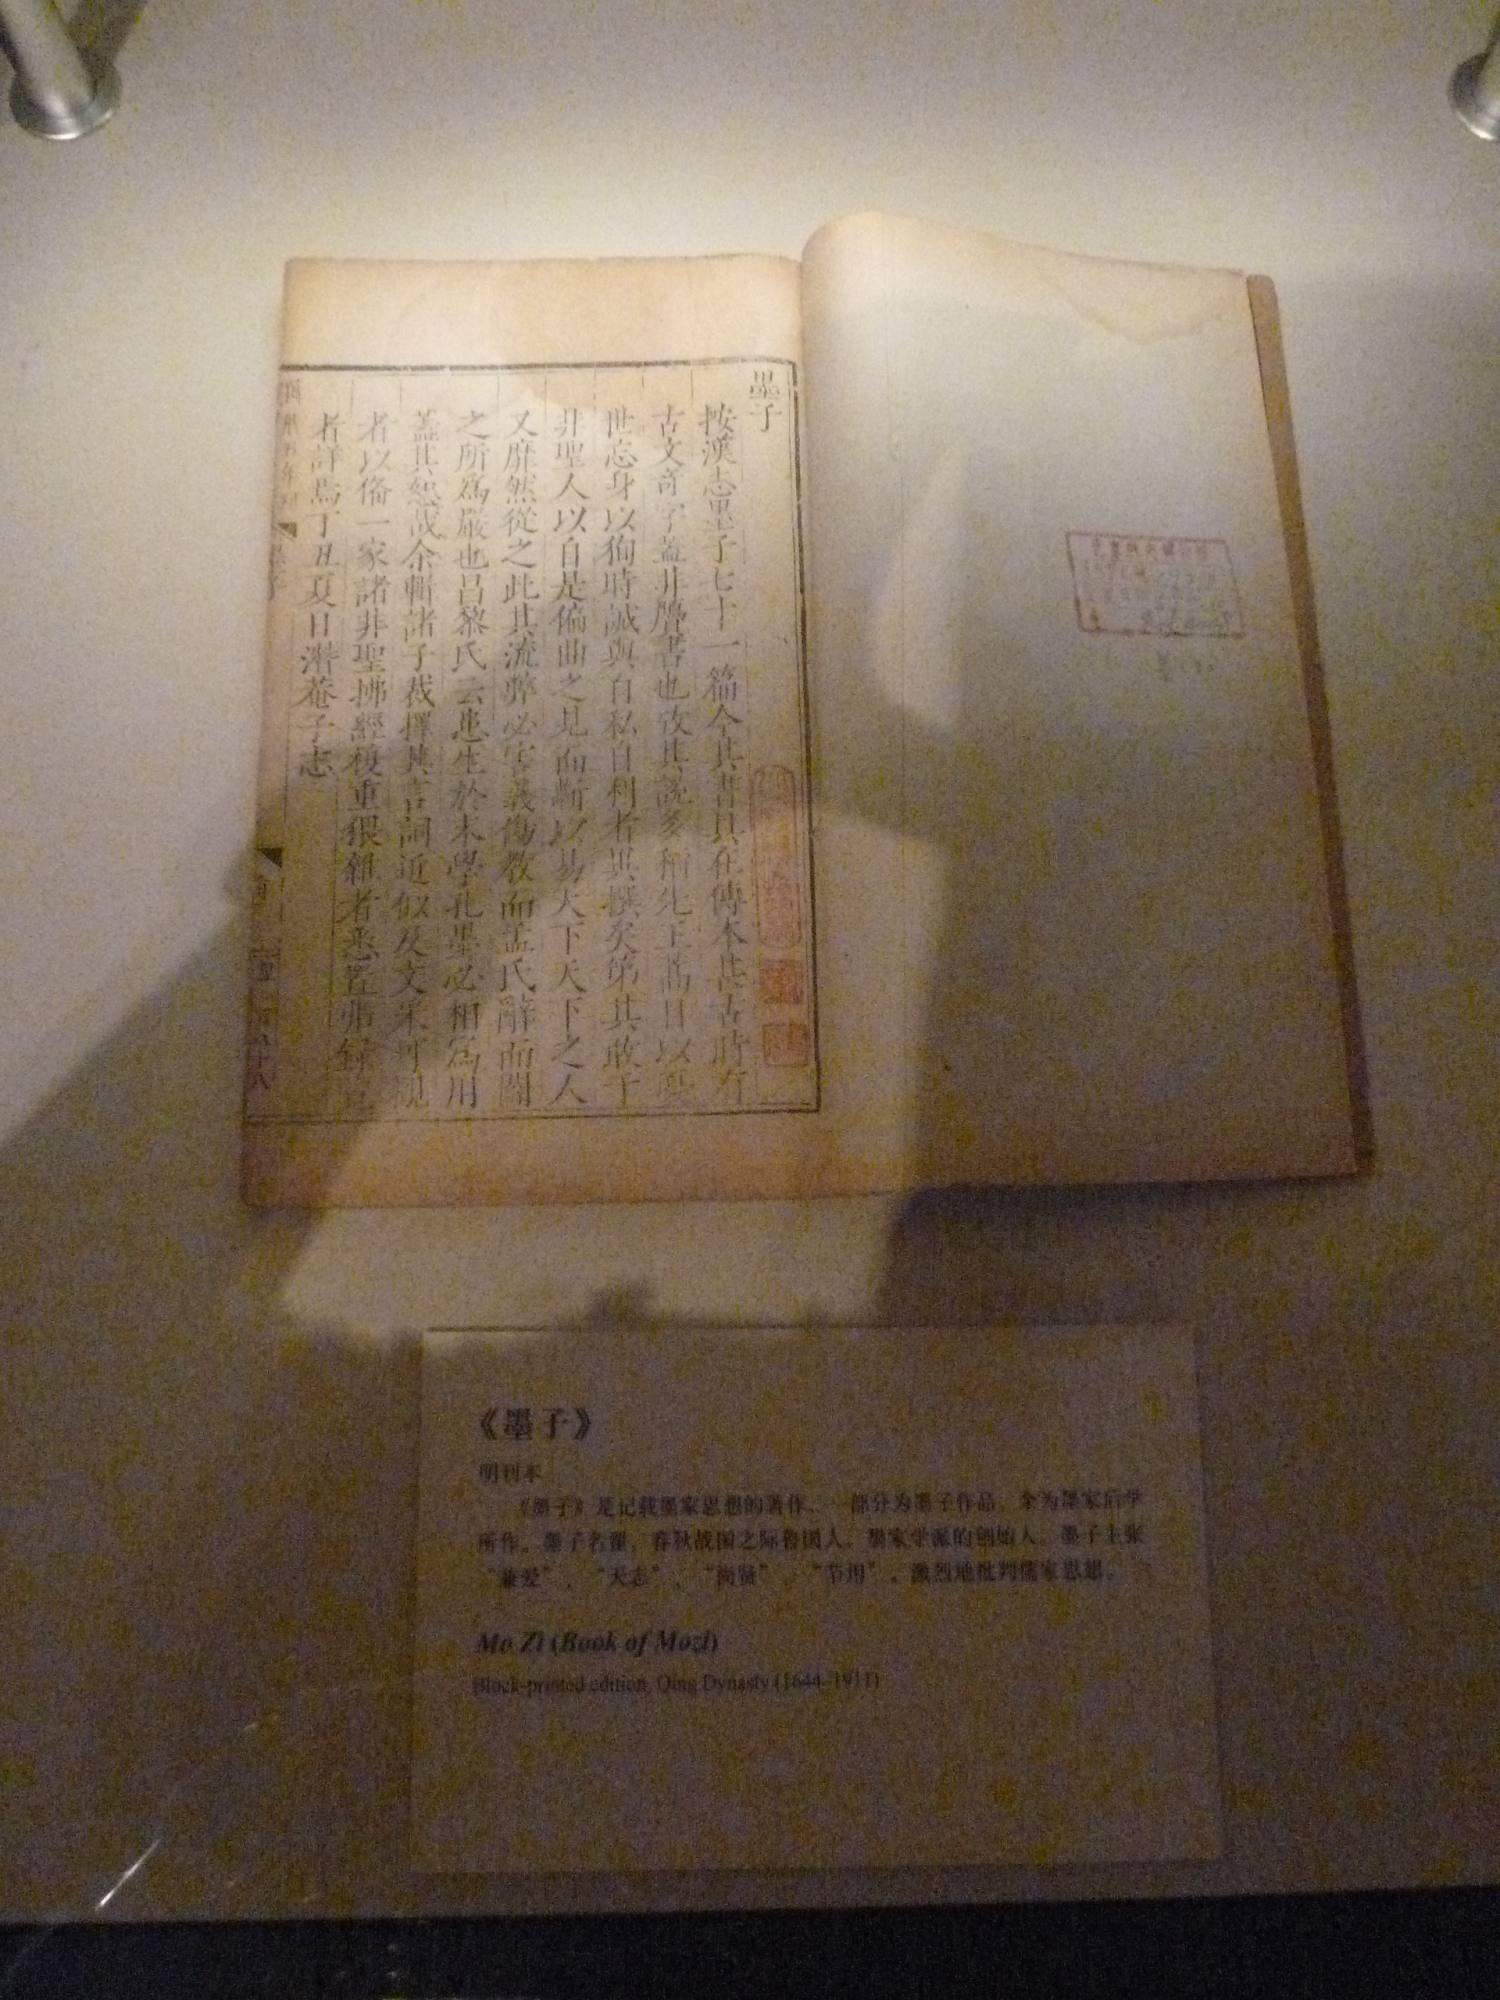 墨子
按漢志墨子七十一篇今其書具在傳本甚古時有
古文奇字蓋非贗書也攷其說多稱先王蒿目以憂
世忘身以狥時誠與自私自利者異撰矣第其敢于
非聖人以自是偏曲之見而斬以易天下天下之人
又靡然從之此其流弊必害義傷教而孟氏辭而闢
之所為嚴也昌黎氏云辯生於末學孔墨必相為用
蓋其恕哉余輯諸子裁擇其言詞近似及文采可觀
者以俻一家諸非聖拂經複重猥雜者悉置弗錄覽
者詳焉丁丑夏日潛菴子志
《墨子》
明刊本
《墨子》是记载墨家思想的著作，一部分为墨子作品，余为墨家后学
所作。墨子名翟，春秋战国之际鲁国人，墨家学派的创始人。墨子主张
“兼爱”、“天志”、“尚贤”、“节用”，激烈地批判儒家思想。
Mo Zi (Book of Mozi)
Block-printed edition, Qing Dynasty (1644-1911)